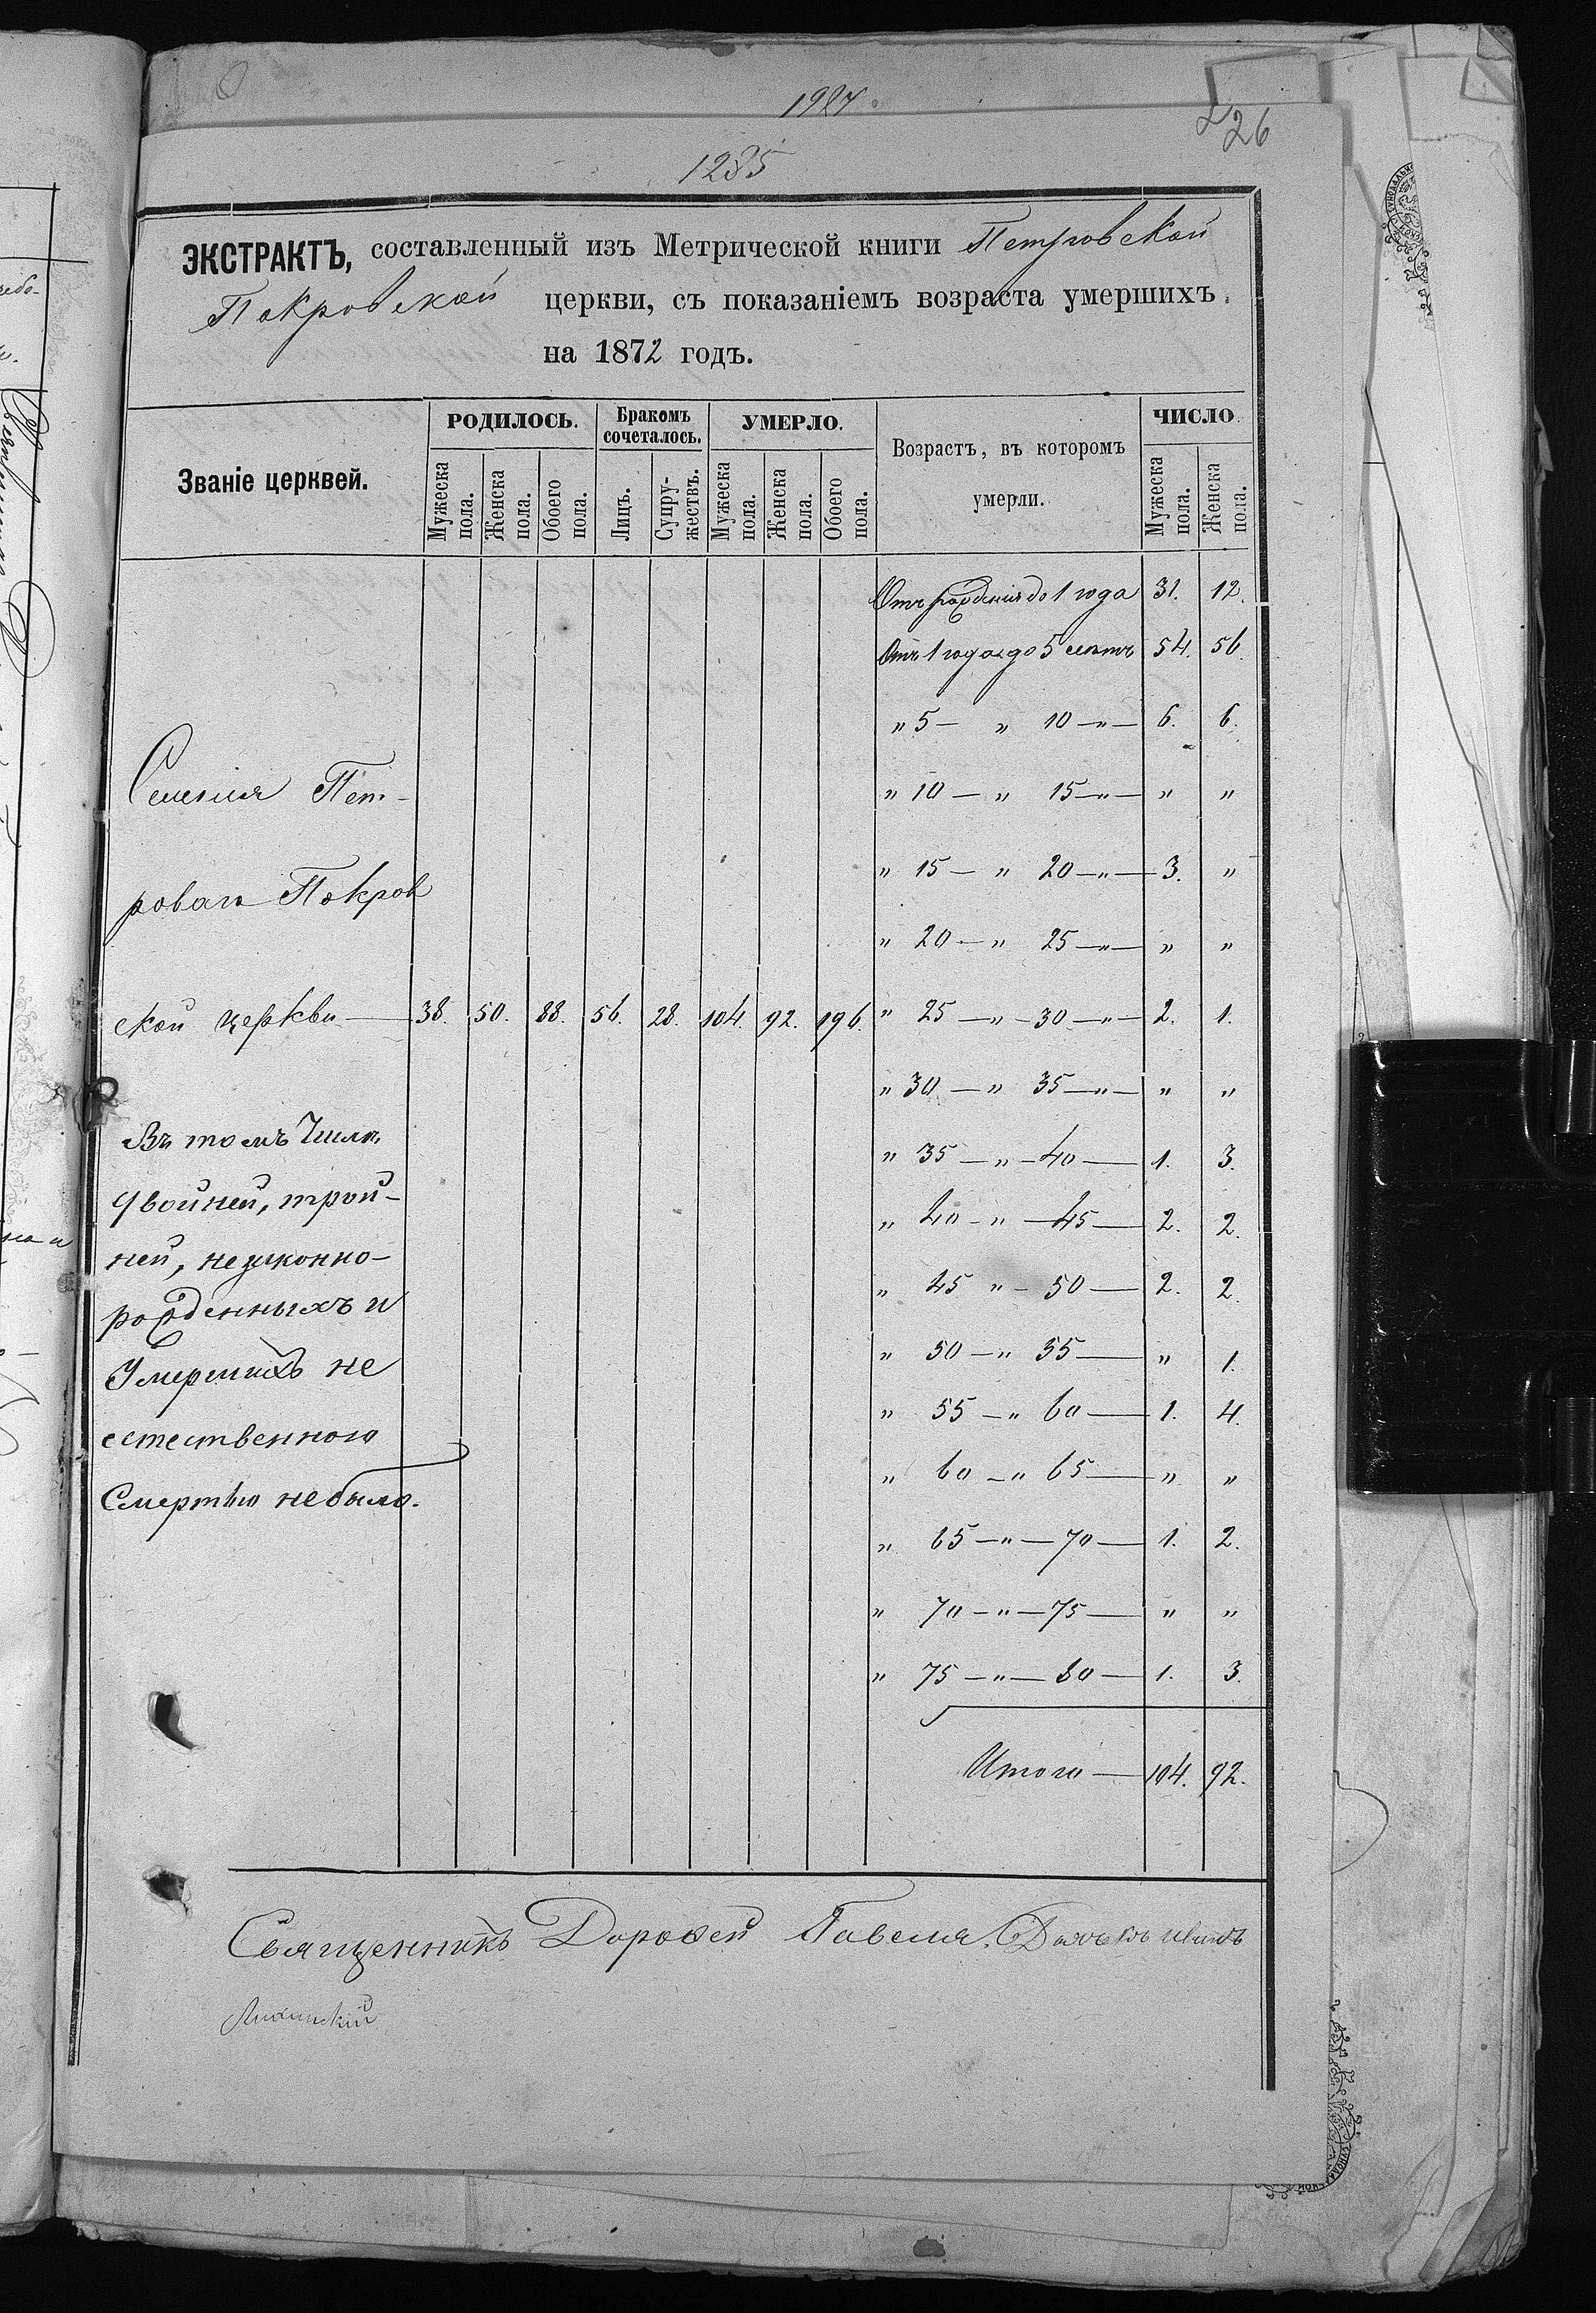 1927
226
1235
ЭКСТРАКТЪ, составленный изъ Метрической книги Петровской
Покровской церкви, съ показаніемъ возраста умершихъ
на 1872 годъ.
Званіе церквей.
РОДИЛОСЬ.
Мужеска пола.
Женска пола.
Обоего пола.
Бракомъ сочеталось.
Лицъ.
Супружествъ.
УМЕРЛО.
Мужеска пола.
Женска пола.
Обоего пола.
Возрастъ, въ которомъ умерли.
ЧИСЛО.
Мужеска пола.
Женска пола.
Отъ рожденія до 1 года 31. 12.
Отъ 1 года до 5 летъ 54. 56.
„ 5 — „ 10 —„— 6. 6.
Селенія Пет-
„ 10 — „ 15 —„— „ „
„ 15 — „ 20 —„— 3. „
ровать Покров
„ 20 — „ 25 —„— „ „
ской церкви — 38. 50. 88. 56. 28. 104. 92. 196. „ 25 —„— 30 —„— 2. 1.
„ 30 — „ 35 —„— „ „
Въ томъ Числе
„ 35 —„— 40 — 1. 3.
двойней, трой-
„ 40 —„— 45 — 2. 2.
ней, незаконно-
„ 45 „ — 50 — 2. 2.
рожденныхъ и
„ 50 —„ 55 — „ 1.
Умершихъ не
„ 55 —„ 60 — 1. 4.
естественною
„ 60 —„ 65 — „ „
Смертью небыло.
„ 65 —„— 70 — 1. 2.
„ 70 —„— 75 — „ „
„ 75 —„— 80 — 1. 3.
Итого — 104. 92.
Священникъ Дороѳей Гавеля.